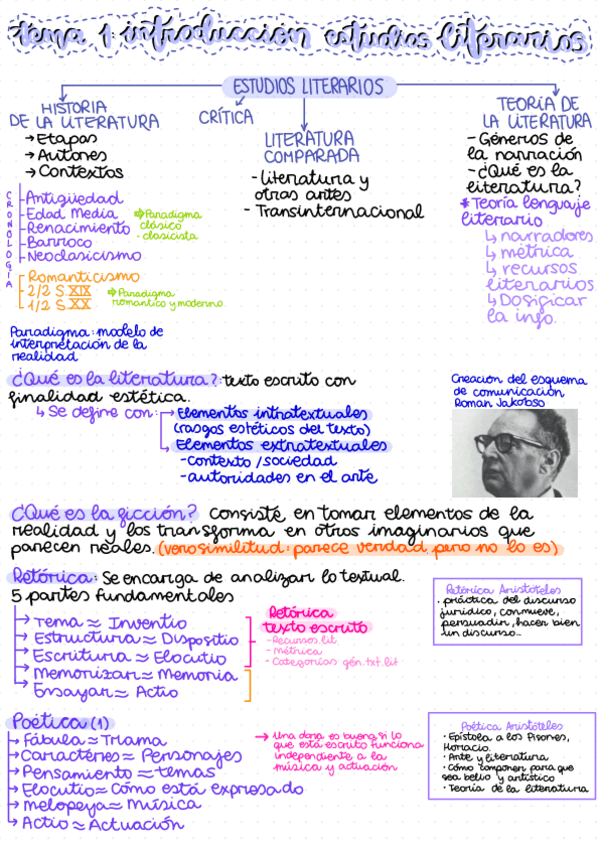 tema 1: introducción estudios literarios
ESTUDIOS LITERARIOS
HISTORIA
DE LA LITERATURA
→ Etapas
→ Autores
→ Contextos
CRÍTICA
LITERATURA
COMPARADA
- literatura y
otras artes
- Transinternacional
TEORÍA DE
LA LITERATURA
- Géneros de
la narración
- ¿Qué es la
literatura?
* Teoría lenguaje
literario
↳ narradores
↳ métrica
↳ recursos
literarios
↳ Dosificar
la info.
CRONOLOGÍA
- Antigüedad
- Edad Media
- Renacimiento
- Barroco
- Neoclasicismo
⇒ Paradigma
clásico
- clasicista
- Romanticismo
- 2/2 S XIX
- 1/2 S XX
⇒ Paradigma
romántico y moderno
Paradigma: modelo de
interpretación de la
realidad
¿Qué es la literatura?: texto escrito con
finalidad estética.
↳ Se define con:
→ Elementos intratextuales
(rasgos estéticos del texto)
→ Elementos extratextuales
- contexto / sociedad
- autoridades en el arte
Creación del esquema
de comunicación
Roman Jakobso
¿Qué es la ficción? consiste, en tomar elementos de la
realidad y los transforma en otros imaginarios que
parecen reales. (verosimilitud: parece verdad pero no lo es)
Retórica: Se encarga de analizar lo textual.
5 partes fundamentales
→ Tema ≈ Inventio
→ Estructura ≈ Dispositio
→ Escritura ≈ Elocutio
→ Memorizar ≈ Memoria
→ Ensayar ≈ Actio
Retórica
texto escrito
- Recursos.lit
- métrica
- Categorías gén.txt.lit
Retórica Aristóteles
· práctica del discurso
jurídico, conmueve,
persuadir, hacer bien
un discurso..
Poética (1)
→ Fábula ≈ Trama
→ Caractéres ≈ Personajes
→ Pensamiento ≈ temas
→ Elocutio ≈ cómo está expresado
→ melopeya ≈ Música
→ Actio ≈ Actuación
→ Una obra es buena si lo
que está escrito funciona
independiente a la
música y actuación
Poética Aristóteles
· Epístola a los Pisones,
Horacio.
· Arte y literatura
· Cómo componer para que
sea bello y artístico
· Teoría de la literatura